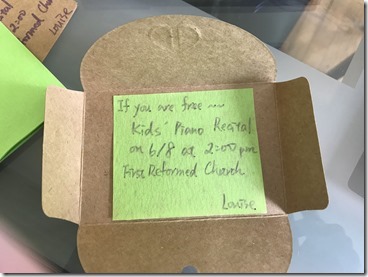 If you are free ~~
Kids' Piano Recital
on 6/8 at 2:00 pm
First Reformed Church.
Louise
ital
2:00
formed Church
Louise